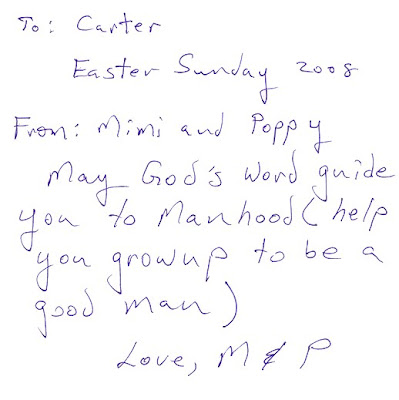 To: Carter
Easter Sunday 2008
From: Mimi and Poppy
May God's word guide
you to Manhood (help
you growup to be a
good man)
Love, M & P